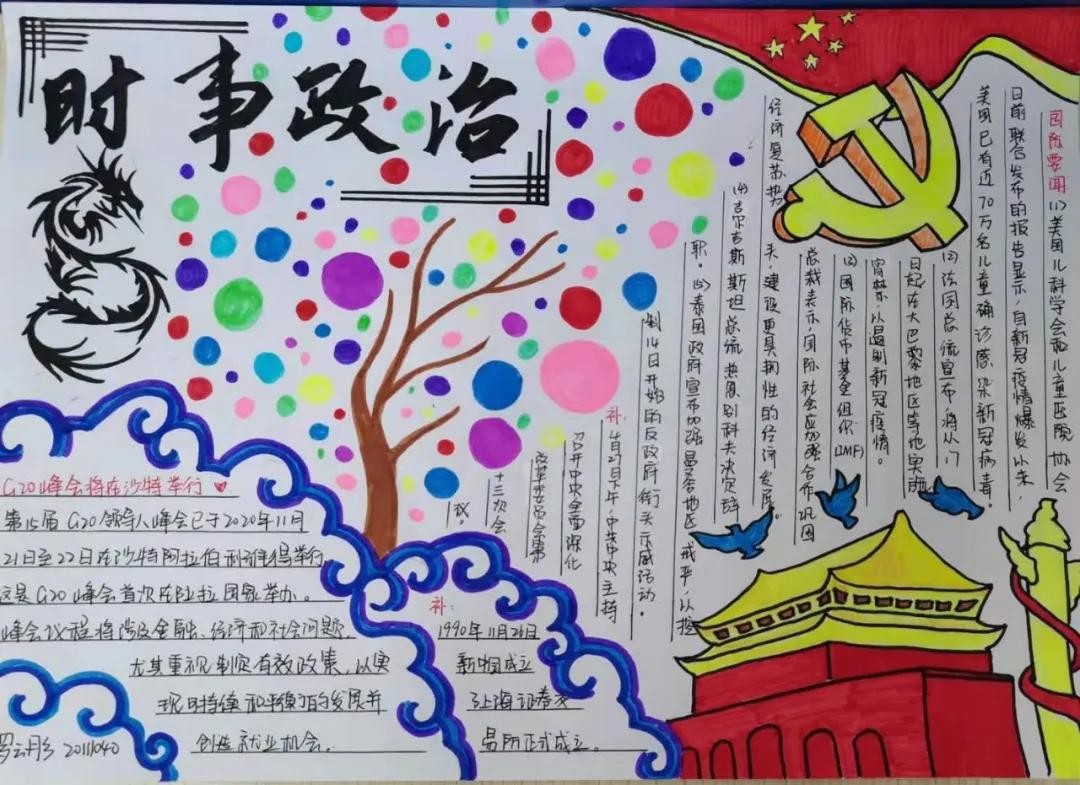 时事政治
国际要闻 (1) 美国儿科学会和儿童医院协会
日前联合发布的报告显示，自新冠疫情爆发以来，
美国已有近70万名儿童确诊感染新冠病毒。
(2) 法国总统宣布将从17
日起在大巴黎地区等地实施
宵禁，以遏制新冠疫情。
(3) 国际货币基金组织(IMF)
总裁表示，国际社会应加强合作，巩固
经济复苏势
头，建设更具韧性的经济发展。
(4) 吉尔吉斯斯坦总统热恩别科夫决定辞
职。(5) 泰国政府宣布加强曼谷地区戒严，以控
制14日开始的反政府街头示威活动。
补：4月27日下午，中共中央主持
召开中央全面深化
改革委员会第
十三次会
议。
G20峰会将在沙特举行
第15届G20领导人峰会已于2020年11月
21日至22日在沙特阿拉伯利雅得举行
这是G20峰会首次在阿拉伯国家举办。
峰会议程将涉及金融、经济和社会问题，
尤其重视制定有效政策，以实
现可持续和平衡的发展并
创造就业机会。
补：
1990年11月26日
新中国成立
上海证券交
易所正式成立。
罗云彤 2011040